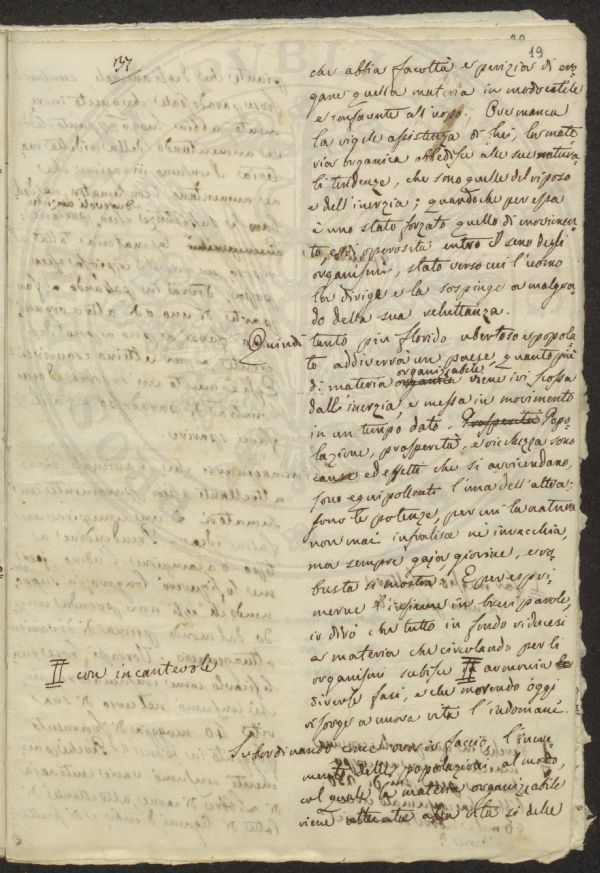 19
137
che abbia facoltà e perizia di ero-
gare questa materia in modo utile
e confacente all'uopo. Ove manca
la vigile assistenza di lui, la mate-
ria organica obbedisce alle sue natura-
li tendenze, che sono quelle del riposo
e dell'inerzia; quandoche per essa
è uno stato forzato quello di movimen-
to, e di operosità entro il seno degli
organismi, stato verso cui l'uomo
la dirige e la sospinge a malgra-
do della sua reluttanza.
Quindi tanto più florido ubertoso e popola-
to addiverrà un paese, quanto più
di materia organica organizzabile viene ivi scossa
dall'inerzia, e messa in movimento
in un tempo dato. Prosperità Popo-
lazione, prosperità, e ricchezza sono
cause ed effetti che si avvicendano,
sono equipollenti l'una dell'altra;
sono le potenze, per cui la natura
non mai infralisce nè invecchia,
ma sempre gaja, giovine, e ro-
busta si mostra. E per espri-
merne l'insieme in brevi parole,
io dirò che tutto in fondo riducesi
a materia che circolando per li
organismi subisce armonia
con incantevole
diverse fasi, e che morendo oggi
risorge a nuova vita l'indomane.
Subordinando come ora io faccio l'incre-
mento delle popolazioni al modo,
col quale la materia organizzabile
viene attuata alla vita si deve